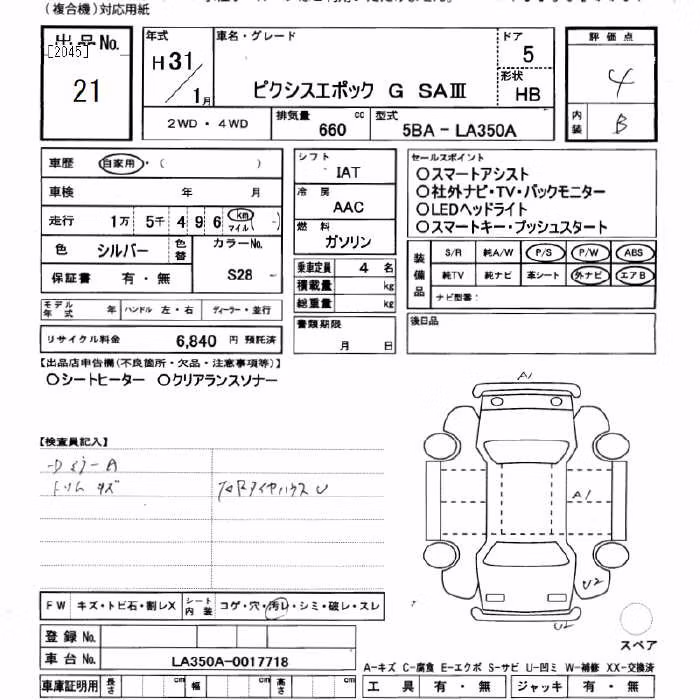 (複合機)対応用紙
出品No.
[2045]
21
年式
H31/1月
車名・グレード
ピクシスエポック G SAⅢ
ドア
5
形状
HB
評価点
4
内装
B
2WD・4WD
排気量
660
cc
型式
5BA-LA350A
車歴
自家用・(　　　)
車検　年　月
走行　1万　5千　4　9　6　km　マイル　(　-　)
色　シルバー
色替
カラーNo.
S28　-
保証書　有・無
モデル年式　年
ハンドル　左・右
ディーラー・並行
リサイクル料金　6,840　円　預託済
シフト
IAT
冷房
AAC
燃料
ガソリン
乗車定員　4　名
積載量　kg
総重量　kg
書類期限
月　日
セールスポイント
○スマートアシスト
○社外ナビ・TV・バックモニター
○LEDヘッドライト
○スマートキー・プッシュスタート
装備品
S/R　純A/W　P/S　P/W　ABS
純TV　純ナビ　革シート　外ナビ　エアB
ナビ型番:
後日品
【出品店申告欄(不良箇所・欠品・注意事項等)】
○シートヒーター　○クリアランスソナー
【検査員記入】
トリム キズ
A1
A1
U2
U2
スペア
FW　キズ・トビ石・割レX
シート内装　コゲ・穴・汚レ・シミ・破レ・スレ
登録No.
車台No.　LA350A-0017718
車庫証明用　長さ　cm　幅　cm　高さ　cm
A-キズ　C-腐食　E-エクボ　S-サビ　U-凹ミ　W-補修　XX-交換済
工具　有・無　ジャッキ　有・無